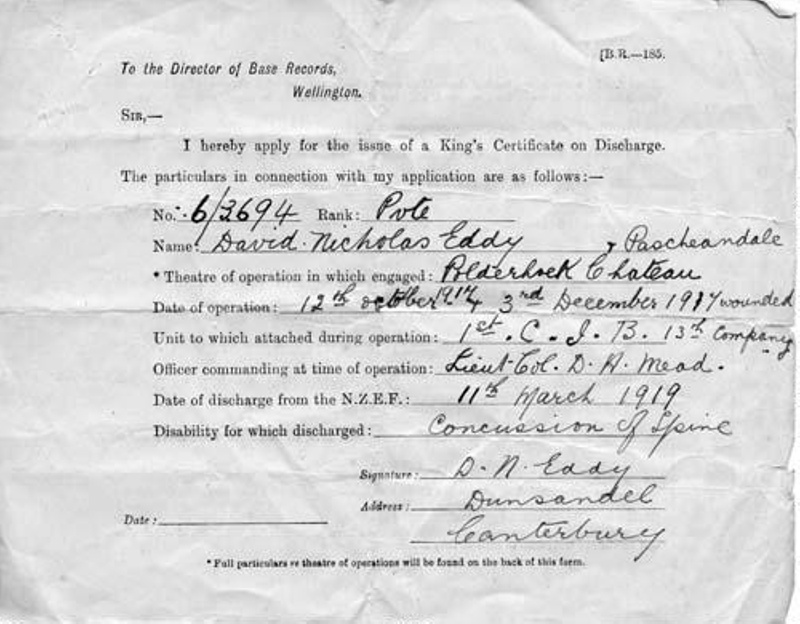 [B.R.—185.
To the Director of Base Records,
Wellington.
SIR,—
I hereby apply for the issue of a King's Certificate on Discharge.
The particulars in connection with my application are as follows:—
No.: 6/3694 Rank: Pvte
Name: David Nicholas Eddy , Pascheandale
* Theatre of operation in which engaged: Polderhoek Chateau
Date of operation: 12th october 1917 & 3rd December 1917 wounded
Unit to which attached during operation: 1st. C. I. B. 13th Company
Officer commanding at time of operation: Lieut Col. D. A. Mead.
Date of discharge from the N.Z.E.F.: 11th March 1919
Disability for which discharged: Concussion of Spine
Signature: D. N. Eddy
Address: Dunsandel
Date: Canterbury
* Full particulars re theatre of operations will be found on the back of this form.